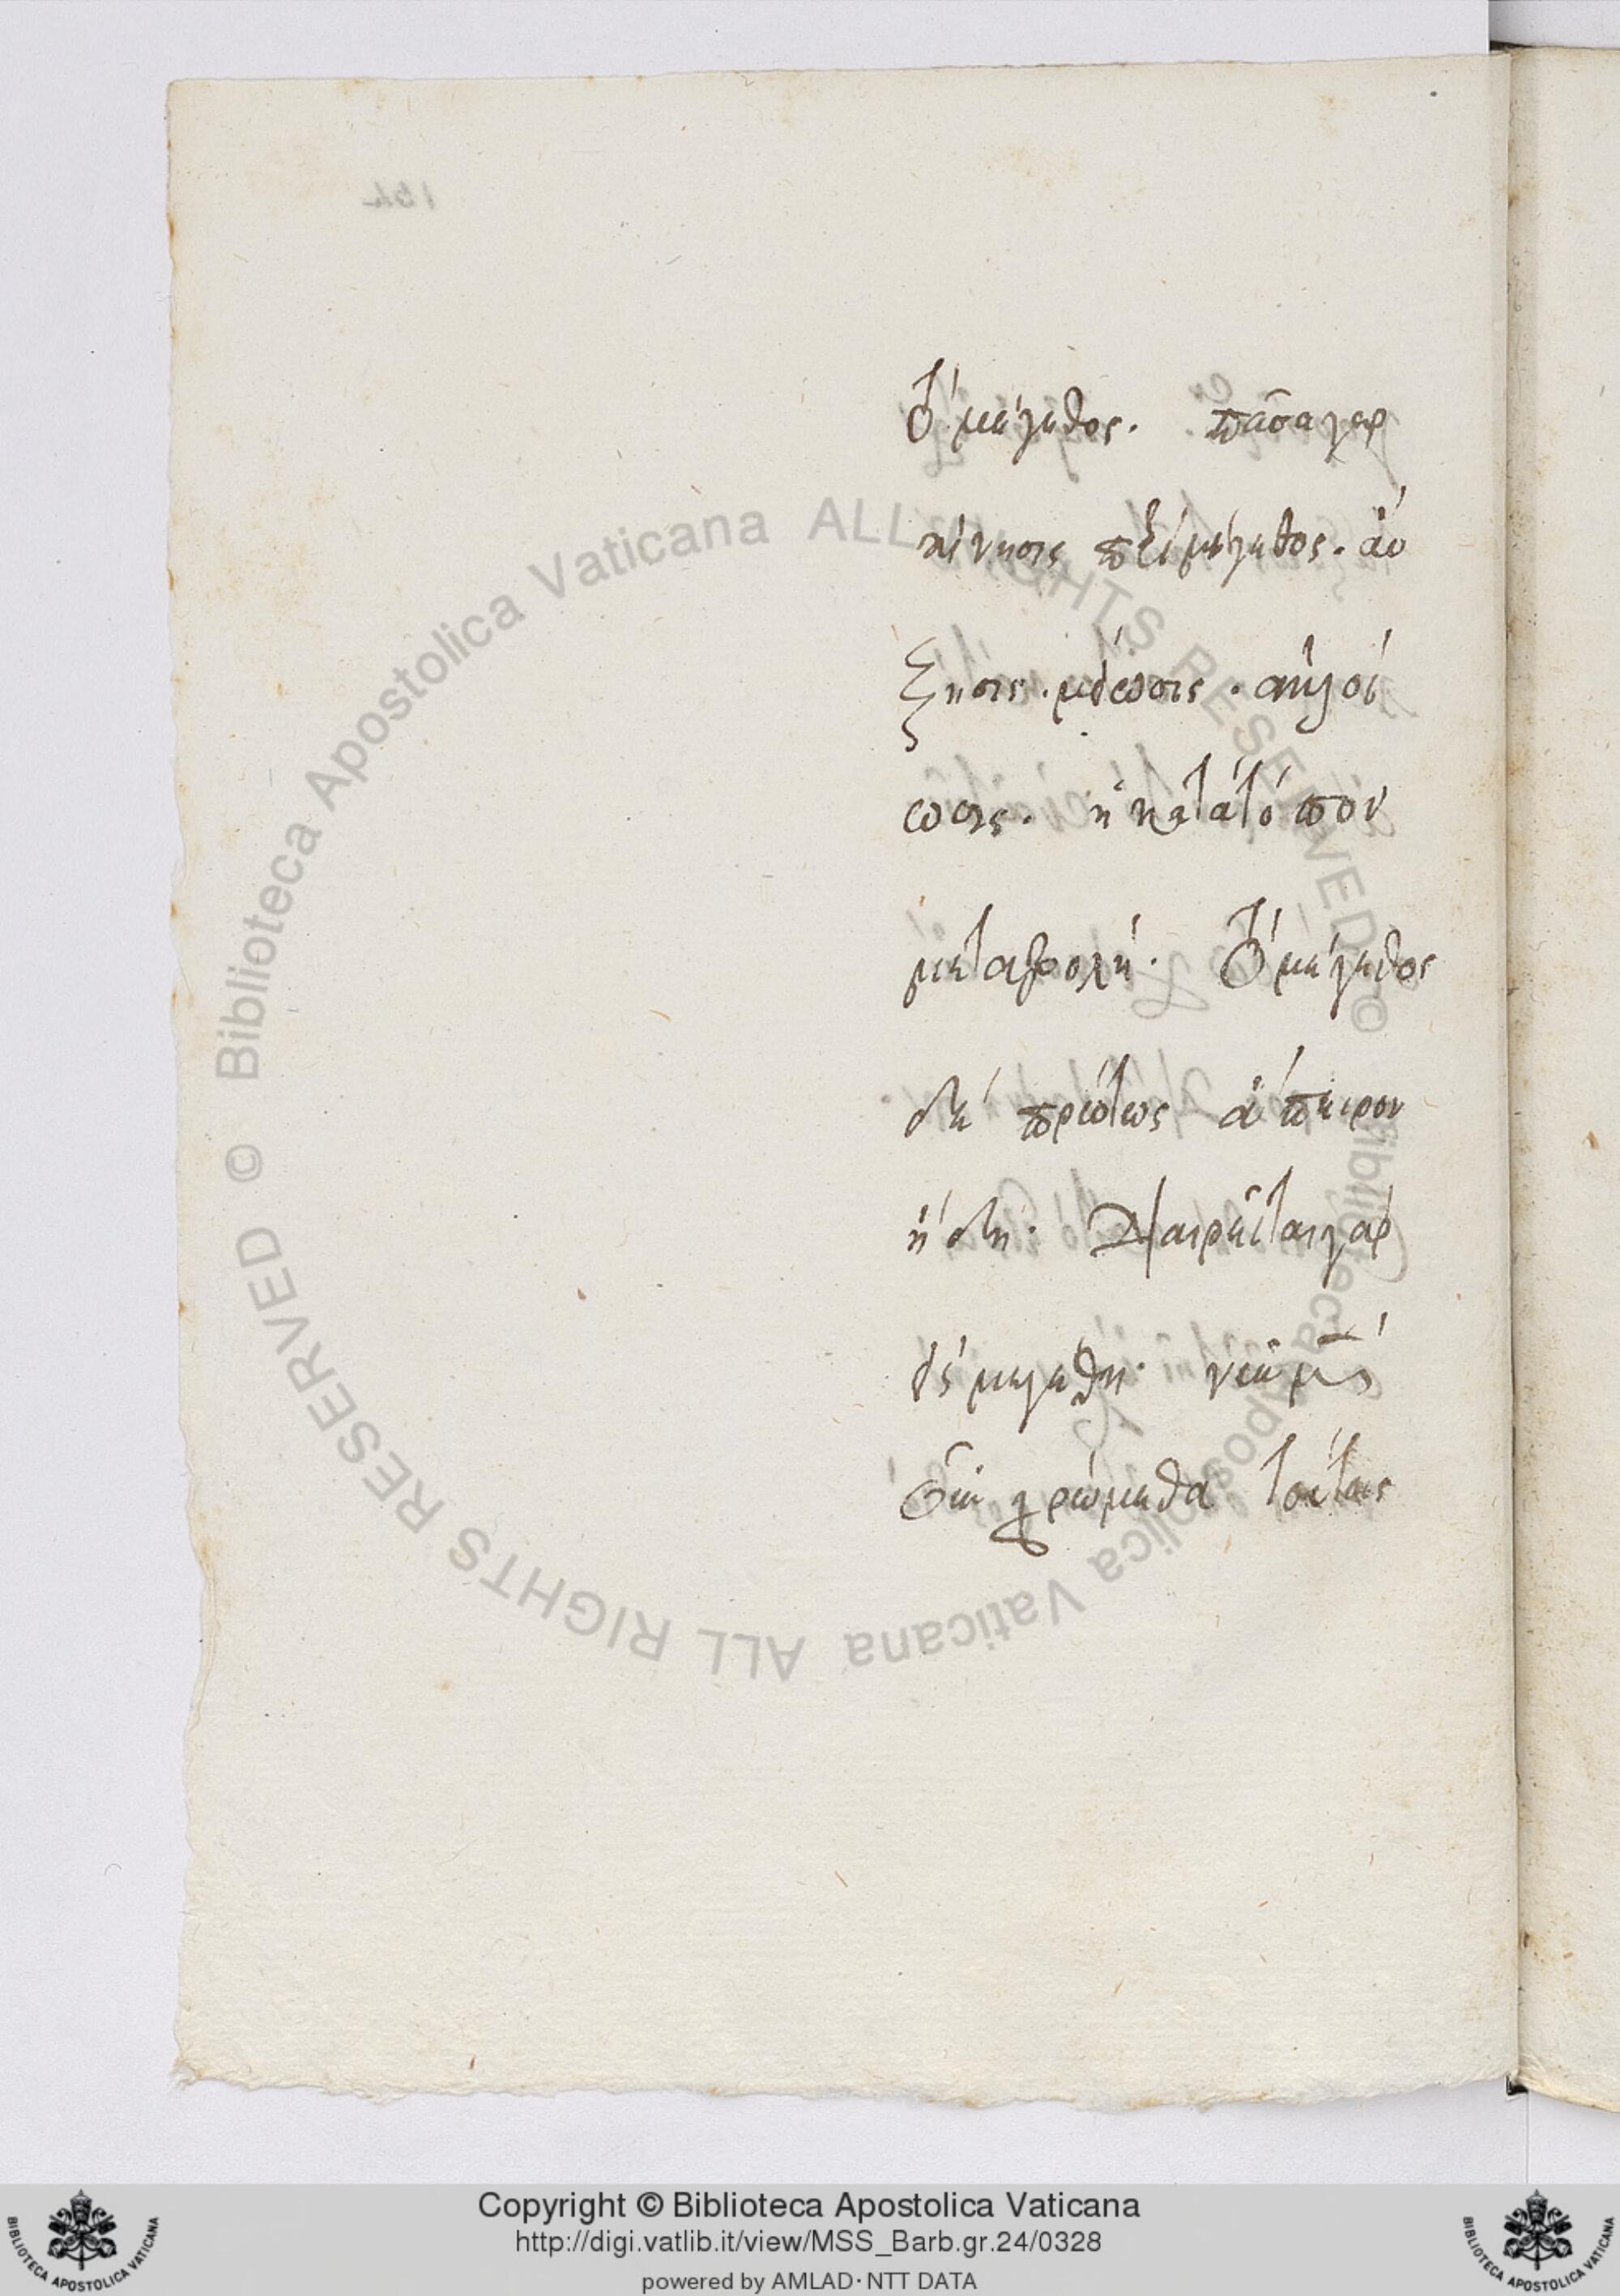 τὸ μέγεθος. πᾶσα γὰρ
κίνησις περὶ μέγεθος. αὔ
ξησις. μείωσις. ἀλλοί
ωσις. ἡ κατὰ τόπον
μεταβολή. τὸ μέγεθος
δὲ πρώτως ἄπειρον
ἤδη. διαιρεῖται γὰρ
μεγέθη.
χρώμεθα τούτοις
Copyright © Biblioteca Apostolica Vaticana
http://digi.vatlib.it/view/MSS_Barb.gr.24/0328
powered by AMLAD·NTT DATA
© Biblioteca Apostolica Vaticana ALL RIGHTS RESERVED © Biblioteca Apostolica Vaticana ALL RIGHTS RESERVED
BIBLIOTECA APOSTOLICA VATICANA
BIBLIOTECA APOSTOLICA VATICANA